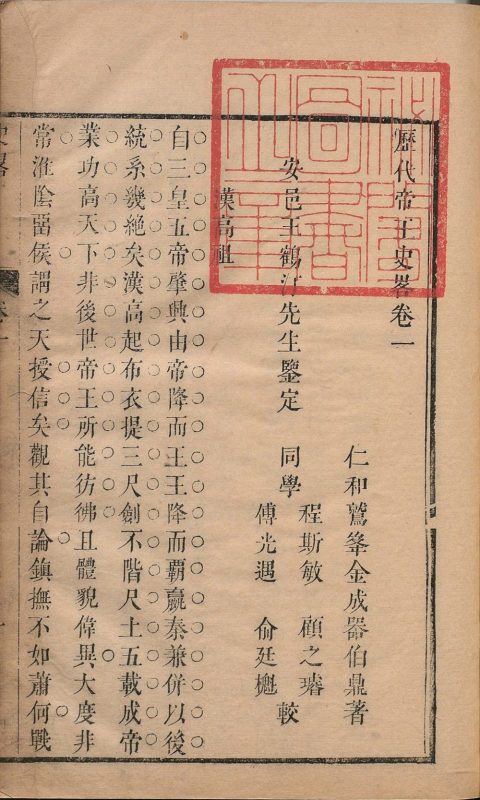 歷代帝王史畧卷一
仁和鷲峯金成器伯鼎著
安邑王鶴汀先生鑒定
同學
程斯敏 顧之璿
傅光遇 俞廷櫆
較
漢高祖
自三皇五帝肇興由帝降而王王降而覇嬴秦兼併以後
統系幾絶矣漢高起布衣提三尺劍不階尺土五載成帝
業功高天下非後世帝王所能彷彿且體貌偉異大度非
常淮陰畱侯謂之天授信矣觀其自論鎮撫不如蕭何戰